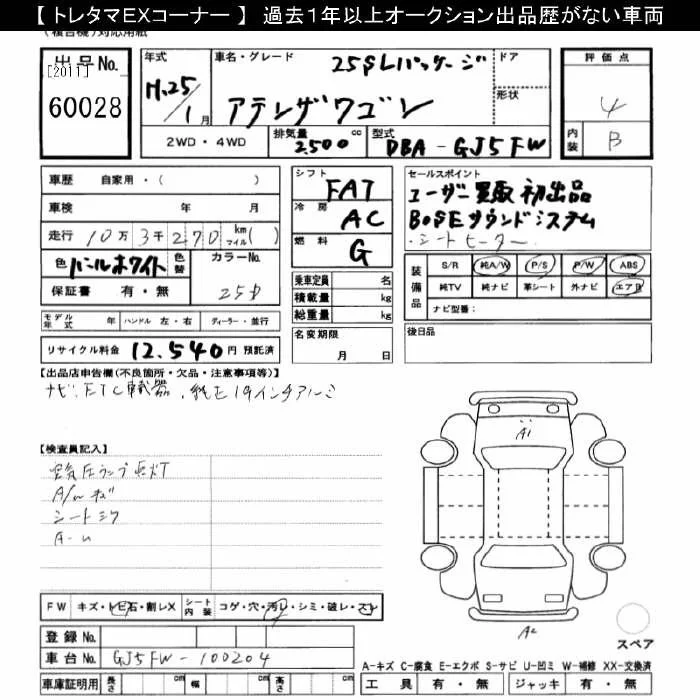 【 トレタマEXコーナー 】 過去1年以上オークション出品歴がない車両
対応用紙
出品No.
[2011]
60028
年式
H.25/1月
車名・グレード
25SLパッケージ
アテンザワゴン
ドア
形状
2WD・4WD
排気量 2,500 cc
型式 DBA-GJ5FW
評価点
4
内装 B
車歴 自家用・( )
車検 年 月
走行 10万3千270 km マイル( )
色 パールホワイト 色替
カラーNo. 25D
保証書 有・無
モデル年式 年 ハンドル 左・右 ディーラー・並行
リサイクル料金 12,540円 預託済
シフト FAT
冷房 AC
燃料 G
乗車定員 名
積載量 kg
総重量 kg
名変期限
月 日
セールスポイント
ユーザー買取初出品
BOSEサウンドシステム
・シートヒーター
装備品
S/R 純A/W P/S P/W ABS
純TV 純ナビ 革シート 外ナビ エアB
ナビ型番:
後日品
【出品店申告欄(不良箇所・欠品・注意事項等)】
ナビ、ETC車載器、純正19インチアルミ
【検査員記入】
空気圧ランプ点灯
A/Wキズ
シート
A-U
A1
A2
FW キズ・トビ石・割レX
シート内装 コゲ・穴・汚レ・シミ・破レ・スレ
登録No.
車台No. GJ5FW-100204
車庫証明用 長さ cm 幅 cm 高さ cm
スペア
A-キズ C-腐食 E-エクボ S-サビ U-凹ミ W-補修 XX-交換済
工具 有・無 ジャッキ 有・無